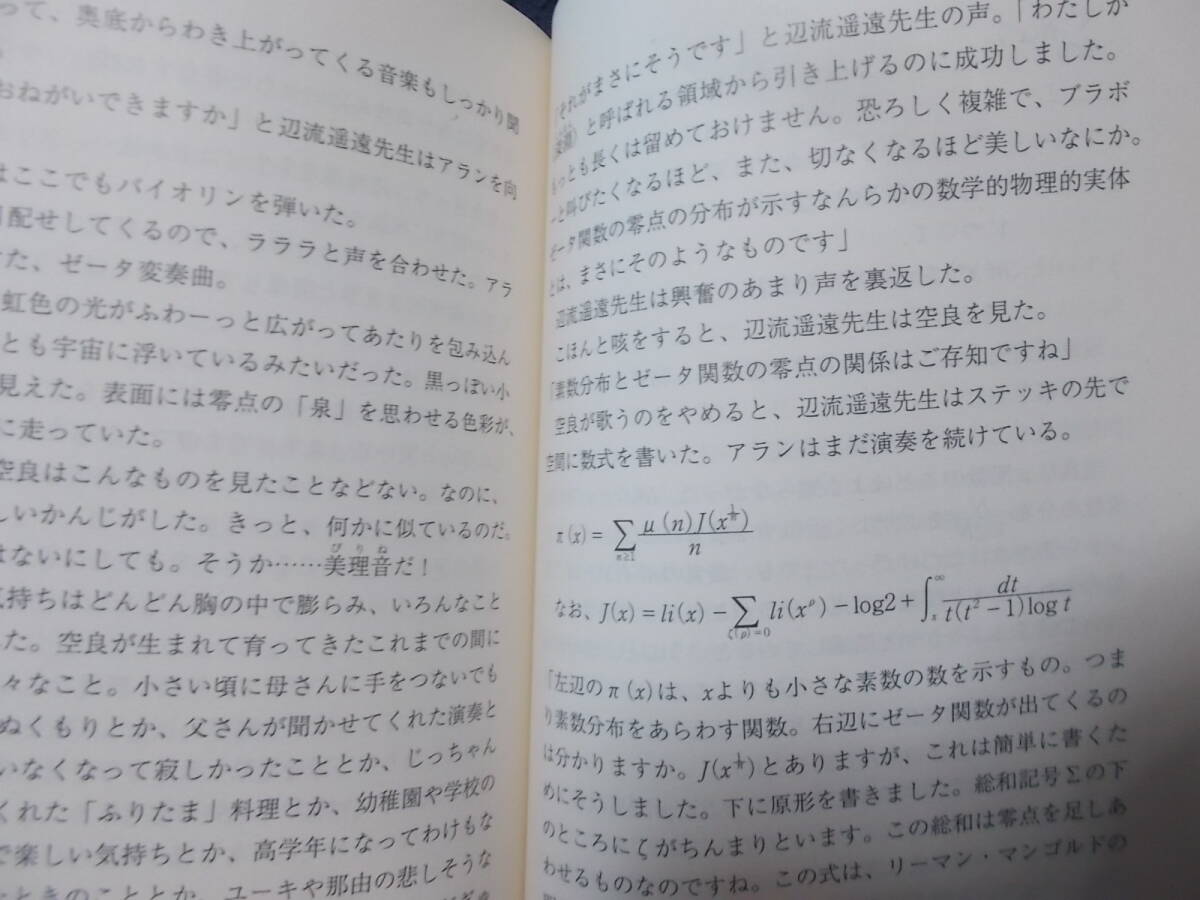 って、奥底からわき上がってくる音楽もしっかり聞
おねがいできますか」と辺流遥遠先生はアランを向
はここでもバイオリンを弾いた。
配せしてくるので、ラララと声を合わせた。アラ
た、ゼータ変奏曲。
虹色の光がふわーっと広がってあたりを包み込ん
とも宇宙に浮いているみたいだった。黒っぽい小
見えた。表面には零点の「泉」を思わせる色彩が、
に走っていた。
空良はこんなものを見たことなどない。なのに、
しいかんじがした。きっと、何かに似ているのだ。
はないにしても。そうか……美理音だ！
びりね
気持ちはどんどん胸の中で膨らみ、いろんなこと
た。空良が生まれて育ってきたこれまでの間に
々なこと。小さい頃に母さんに手をつないでも
ぬくもりとか、父さんが聞かせてくれた演奏と
いなくなって寂しかったこととか、じっちゃん
くれた「ふりたま」料理とか、幼稚園や学校の
で楽しい気持ちとか、高学年になってわけもな
ときのこととか、ユーキや那由の悲しそうな
「それがまさにそうです」と辺流遥遠先生の声。「わたしか
と呼ばれる領域から引き上げるのに成功しました。
もっとも長くは留めておけません。恐ろしく複雑で、ブラボ
ーと叫びたくなるほど、また、切なくなるほど美しいなにか。
ゼータ関数の零点の分布が示すなんらかの数学的物理的実体
とは、まさにそのようなものです」
辺流遥遠先生は興奮のあまり声を裏返した。
こほんと咳をすると、辺流遥遠先生は空良を見た。
「素数分布とゼータ関数の零点の関係はご存知ですね」
空良が歌うのをやめると、辺流遥遠先生はステッキの先で
空間に数式を書いた。アランはまだ演奏を続けている。
π(x)=∑_{n≥1} μ(n)J(x^{1/n})/n
なお、J(x)=li(x)−∑_{ζ(ρ)=0} li(x^ρ)−log2+∫_x^∞ dt/t(t²−1)log t
「左辺のπ(x)は、xよりも小さな素数の数を示すもの。つま
り素数分布をあらわす関数。右辺にゼータ関数が出てくるの
は分かりますか。J(x^{1/n})とありますが、これは簡単に書くた
めにそうしました。下に原形を書きました。総和記号Σの下
のところにζがちんまりといます。この総和は零点を足しあ
わせるものなのですね。この式は、リーマン・マンゴルドの